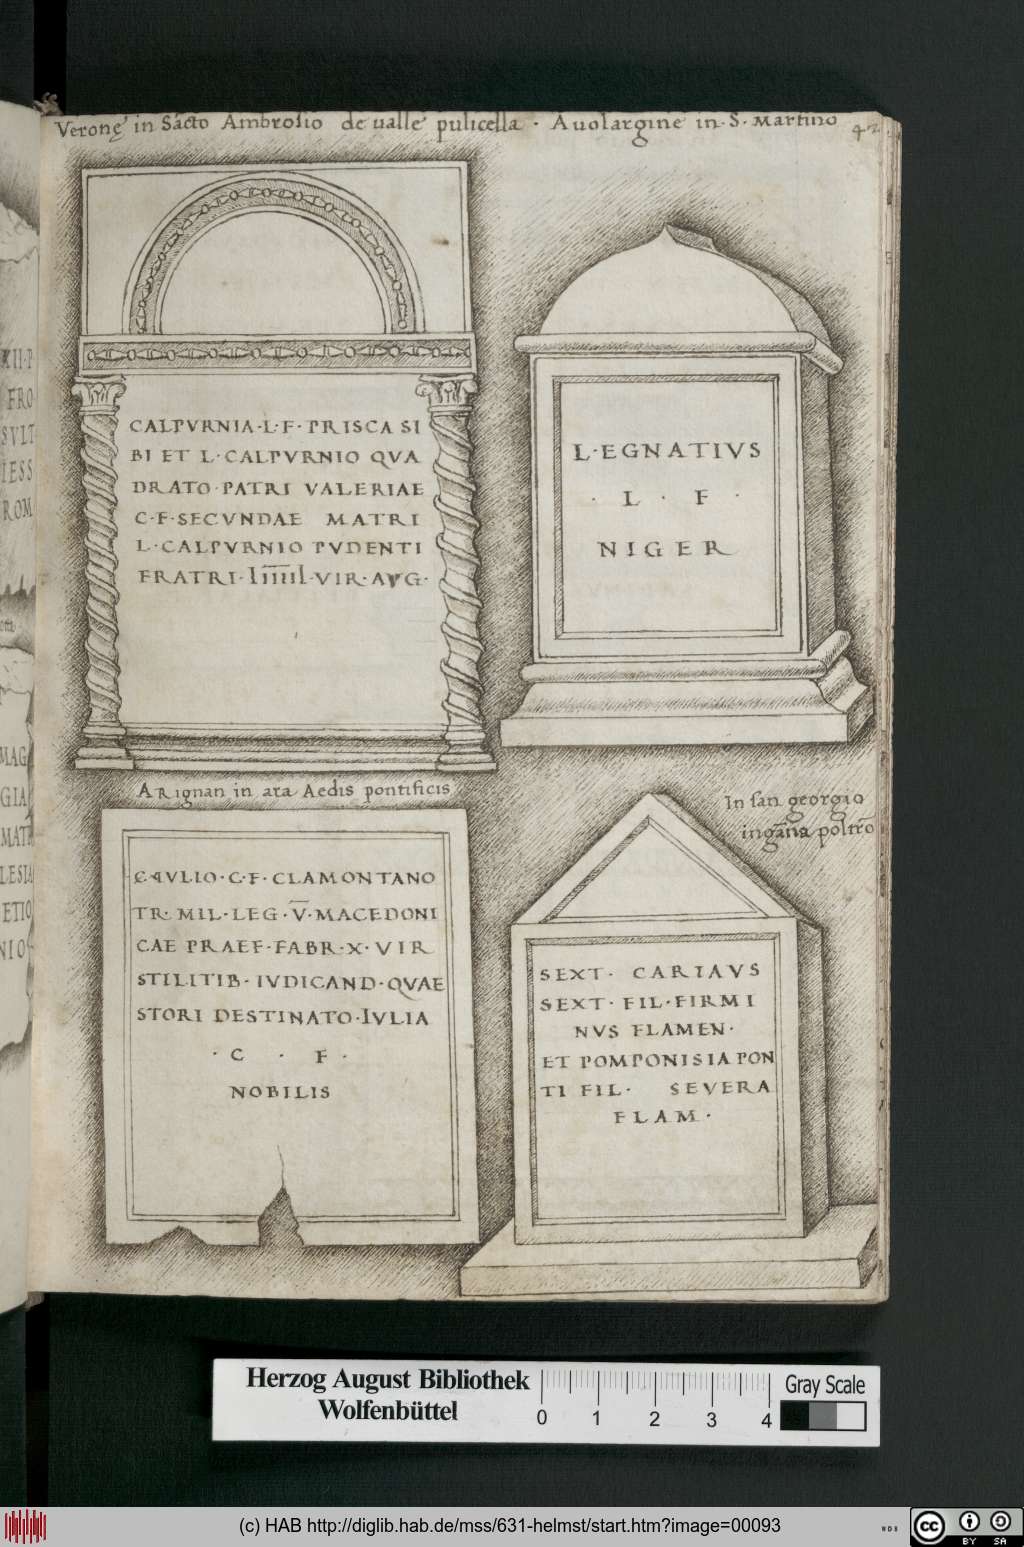 Veronę in Sācto Ambrosio de ualle pulicella · Auolargine in · S · Martino
42
CALPVRNIA · L · F · PRISCA SI
BI ET L · CALPVRNIO QVA
DRATO · PATRI VALERIAE
C · F · SECVNDAE MATRI
L · CALPVRNIO PVDENTI
FRATRI · IIIIII · VIR · AVG ·
L · EGNATIVS
· L · F ·
NIGER
ARignan in ara Aedis pontificis
C AVLIO · C · F · CLAMONTANO
TR · MIL · LEG · V̅ · MACEDONI
CAE PRAEF · FABR · X · VIR
STILITIB · IVDICAND · QVAE
STORI DESTINATO · IVLIA
· C · F ·
NOBILIS
In san georgio
SEXT · CARIAVS
SEXT · FIL · FIRMI
NVS FLAMEN ·
ET POMPONISIA PON
TI FIL · SEVERA
FLAM ·
XII · P
FRO
SVLT
IESS
ROM
MAG
GIA
MATR
LESIA
ETIO
NIO
Herzog August Bibliothek
Wolfenbüttel
0 1 2 3 4
Gray Scale
(c) HAB http://diglib.hab.de/mss/631-helmst/start.htm?image=00093
WDB
cc
BY SA